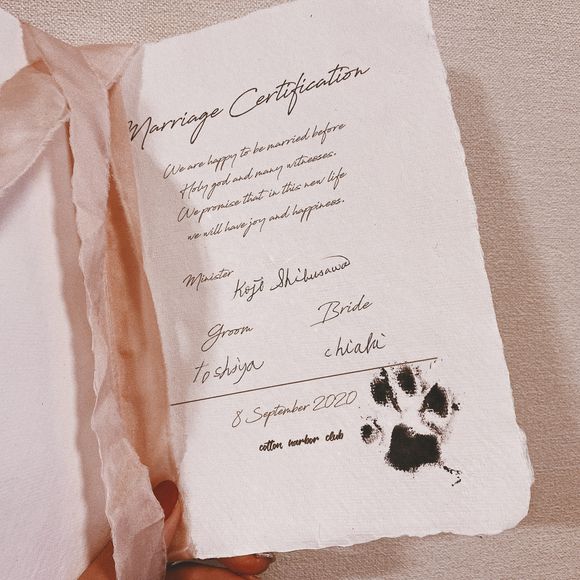 Marriage Certification
We are happy to be married before
Holy god and many witnesses.
We promise that in this new life
we will have joy and happiness.
Minister Kojo Shibusawa
Groom Bride
toshiya chiaki
8 September 2020
cotton harbor club